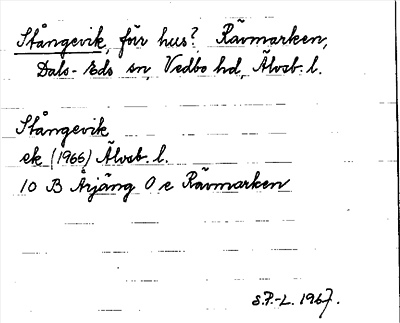 Stångevik, för hus? Rävmarken,
Dals-Eds sn, Vedbo hd, Älvsb. l.
Stångevik
ek (1966) Älvsb. l.
10 B Årjäng 0 e Rävmarken
S.P.-L. 1967.